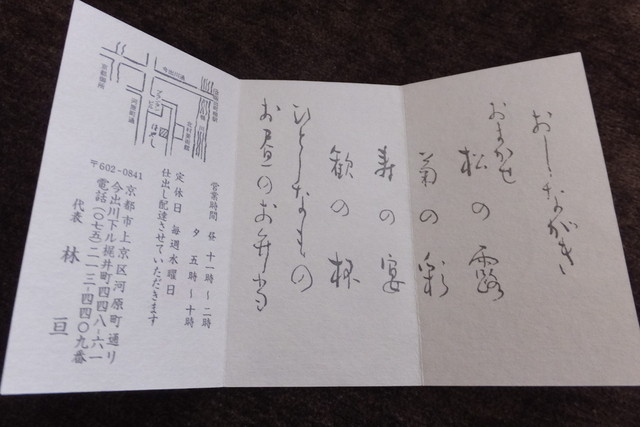 おしながき
おまかせ
松の露
菊の彩
寿の宴
歓の杯
ひとしなもの
お昼のお弁当
営業時間 昼 十一時～二時
夕 五時～十時
定休日 毎週水曜日
仕出し配達させていただきます
〒602-0841
京都市上京区河原町通り
今出川下ル梶井町四四八-六一
電話(〇七五)二一三-四四〇九番
代表 林 亘
今出川通
京都御所
河原町通
プランタンビル
はやし
北村美術館